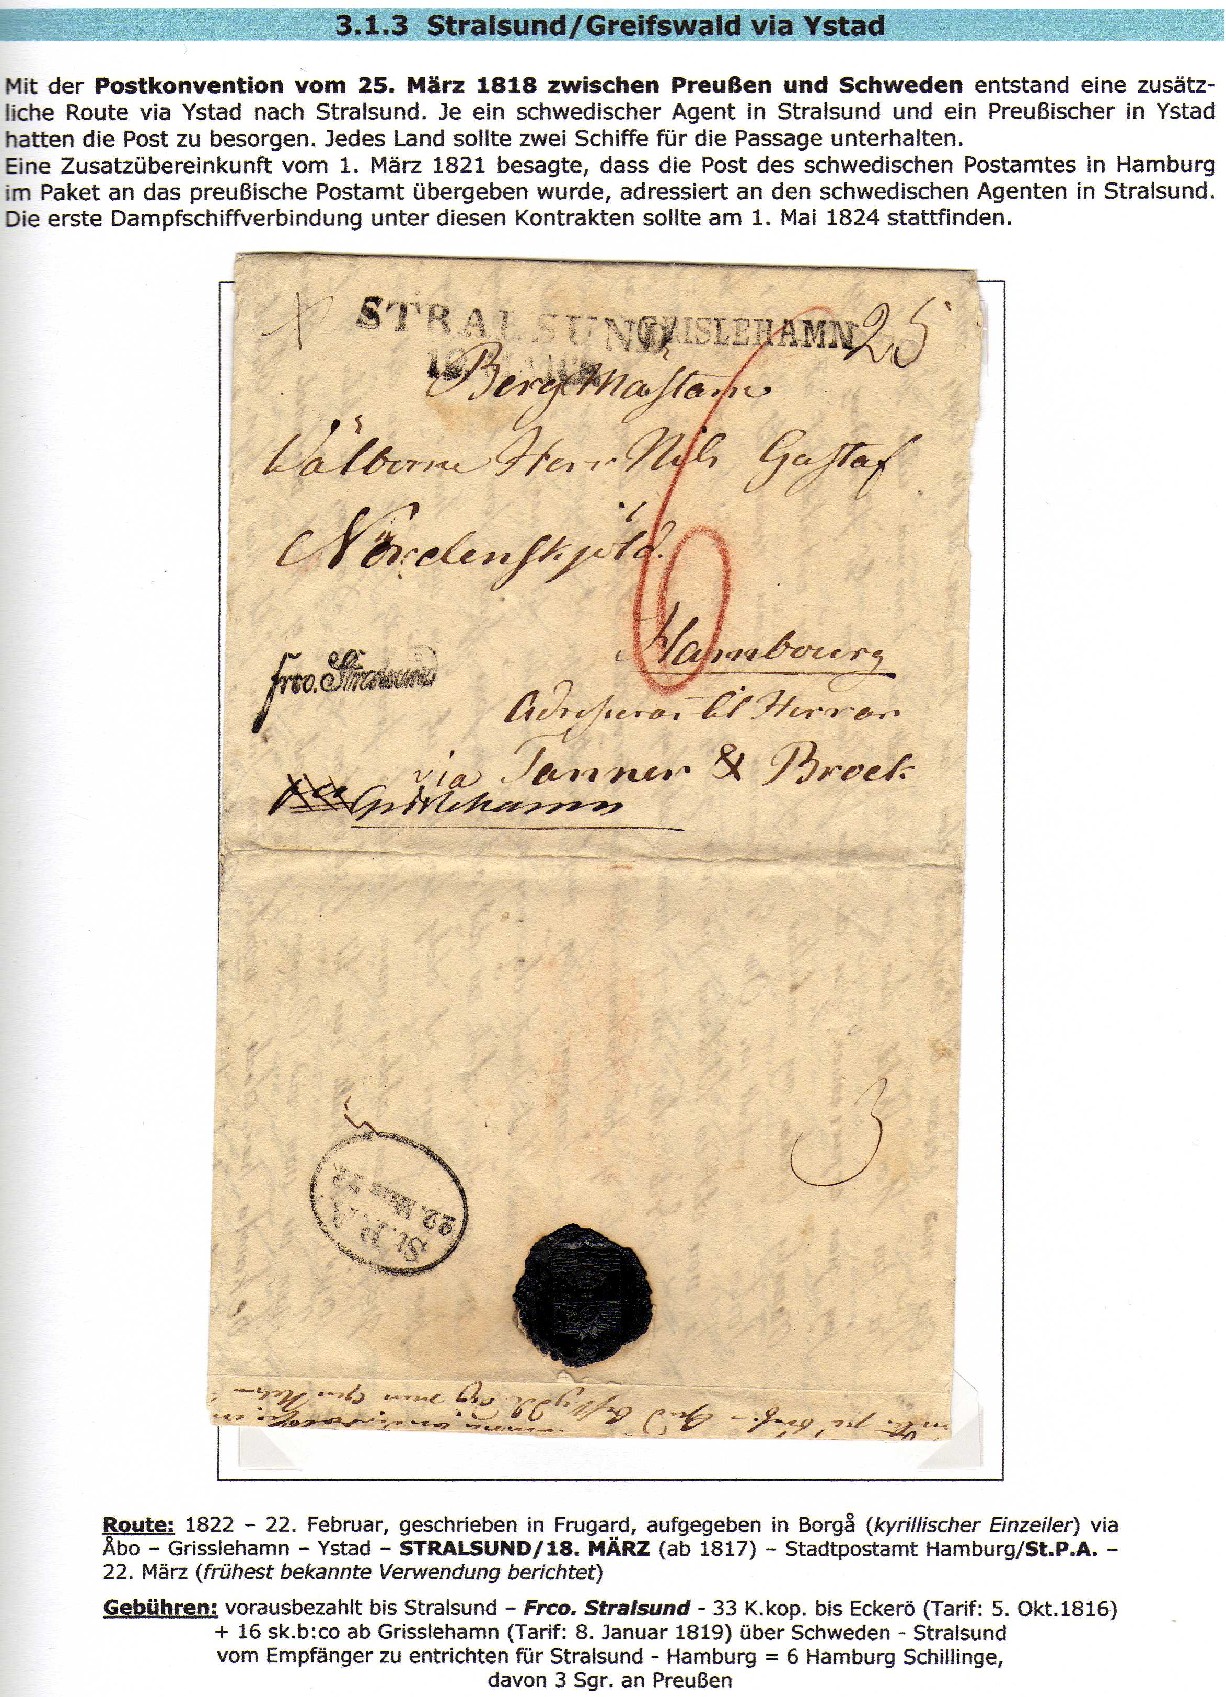 3.1.3 Stralsund/Greifswald via Ystad
Mit der Postkonvention vom 25. März 1818 zwischen Preußen und Schweden entstand eine zusätz-
liche Route via Ystad nach Stralsund. Je ein schwedischer Agent in Stralsund und ein Preußischer in Ystad
hatten die Post zu besorgen. Jedes Land sollte zwei Schiffe für die Passage unterhalten.
Eine Zusatzübereinkunft vom 1. März 1821 besagte, dass die Post des schwedischen Postamtes in Hamburg
im Paket an das preußische Postamt übergeben wurde, adressiert an den schwedischen Agenten in Stralsund.
Die erste Dampfschiffverbindung unter diesen Kontrakten sollte am 1. Mai 1824 stattfinden.
STRALSUND GRISLEHAMN 25
BergMastaren
Wälborne Herr Nils Gustaf
Nordenskjöld.
6
Hambourg
frco. Stralsund
Adresseras til Herrar
via Tanner & Brock
Grislehamn
3
St. P. A.
22. März 22.
Route: 1822 – 22. Februar, geschrieben in Frugard, aufgegeben in Borgå (kyrillischer Einzeiler) via
Åbo – Grisslehamn – Ystad – STRALSUND/18. MÄRZ (ab 1817) – Stadtpostamt Hamburg/St.P.A. –
22. März (frühest bekannte Verwendung berichtet)
Gebühren: vorausbezahlt bis Stralsund – Frco. Stralsund - 33 K.kop. bis Eckerö (Tarif: 5. Okt.1816)
+ 16 sk.b:co ab Grisslehamn (Tarif: 8. Januar 1819) über Schweden - Stralsund
vom Empfänger zu entrichten für Stralsund - Hamburg = 6 Hamburg Schillinge,
davon 3 Sgr. an Preußen